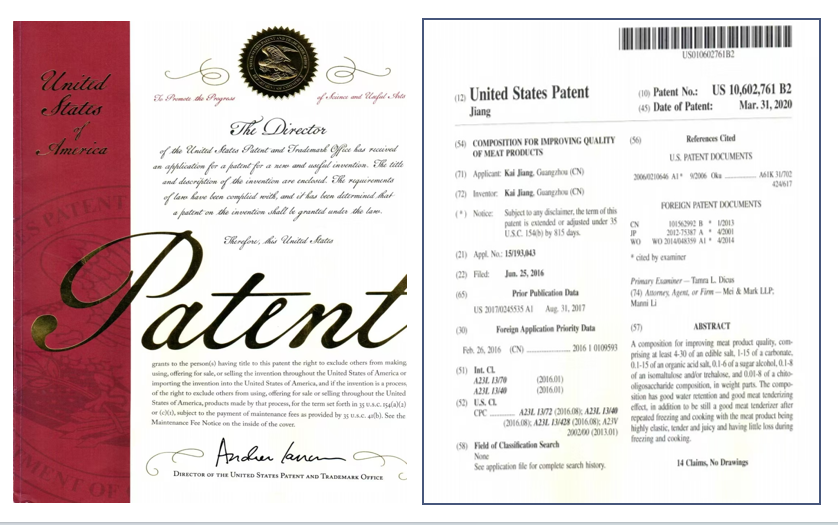 United
States
of
America
To Promote the Progress
of Science and Useful Arts
The Director
of the United States Patent and Trademark Office has received
an application for a patent for a new and useful invention. The title
and description of the invention are enclosed. The requirements
of law have been complied with, and it has been determined that
a patent on the invention shall be granted under the law.
Therefore, this United States
Patent
grants to the person(s) having title to this patent the right to exclude others from making,
using, offering for sale, or selling the invention throughout the United States of America or
importing the invention into the United States of America, and if the invention is a process,
of the right to exclude others from using, offering for sale or selling throughout the United
States of America, products made by that process, for the term set forth in 35 U.S.C. 154(a)(2)
or (c)(1), subject to the payment of maintenance fees as provided by 35 U.S.C. 41(b). See the
Maintenance Fee Notice on the inside of the cover.
DIRECTOR OF THE UNITED STATES PATENT AND TRADEMARK OFFICE
US010602761B2
(12) United States Patent
Jiang
(10) Patent No.: US 10,602,761 B2
(45) Date of Patent: Mar. 31, 2020
(54) COMPOSITION FOR IMPROVING QUALITY
OF MEAT PRODUCTS
(71) Applicant: Kai Jiang, Guangzhou (CN)
(72) Inventor: Kai Jiang, Guangzhou (CN)
(*) Notice: Subject to any disclaimer, the term of this
patent is extended or adjusted under 35
U.S.C. 154(b) by 815 days.
(21) Appl. No.: 15/193,043
(22) Filed: Jun. 25, 2016
(65) Prior Publication Data
US 2017/0245535 A1 Aug. 31, 2017
(30) Foreign Application Priority Data
Feb. 26, 2016 (CN) .................. 2016 1 0109593
(51) Int. Cl.
A23L 13/70 (2016.01)
A23L 13/40 (2016.01)
(52) U.S. Cl.
CPC ........ A23L 13/72 (2016.08); A23L 13/40
(2016.08); A23L 13/428 (2016.08); A23V
2002/00 (2013.01)
(58) Field of Classification Search
None
See application file for complete search history.
(56) References Cited
U.S. PATENT DOCUMENTS
2006/0210646 A1* 9/2006 Oku ............ A61K 31/702
424/617
FOREIGN PATENT DOCUMENTS
CN 101562992 B * 1/2013
JP 2012-75387 A * 4/2001
WO WO 2014/048359 A1 * 4/2014
* cited by examiner
Primary Examiner — Tamra L. Dicus
(74) Attorney, Agent, or Firm — Mei & Mark LLP;
Manni Li
(57) ABSTRACT
A composition for improving meat product quality, com-
prising at least 4-30 of an edible salt, 1-15 of a carbonate,
0.1-15 of an organic acid salt, 0.1-6 of a sugar alcohol, 0.1-8
of an isomaltulose and/or trehalose, and 0.01-8 of a chito-
oligosaccharide composition, in weight parts. The compo-
sition has good water retention and good meat tenderizing
effect, in addition to be still a good meat tenderizer after
repeated freezing and cooking with the meat product being
highly elastic, tender and juicy and having little loss during
freezing and cooking.
14 Claims, No Drawings